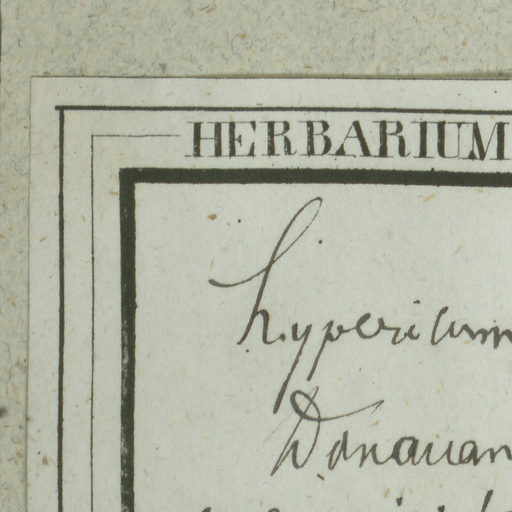 HERBARIUM
hypericum
Donauan